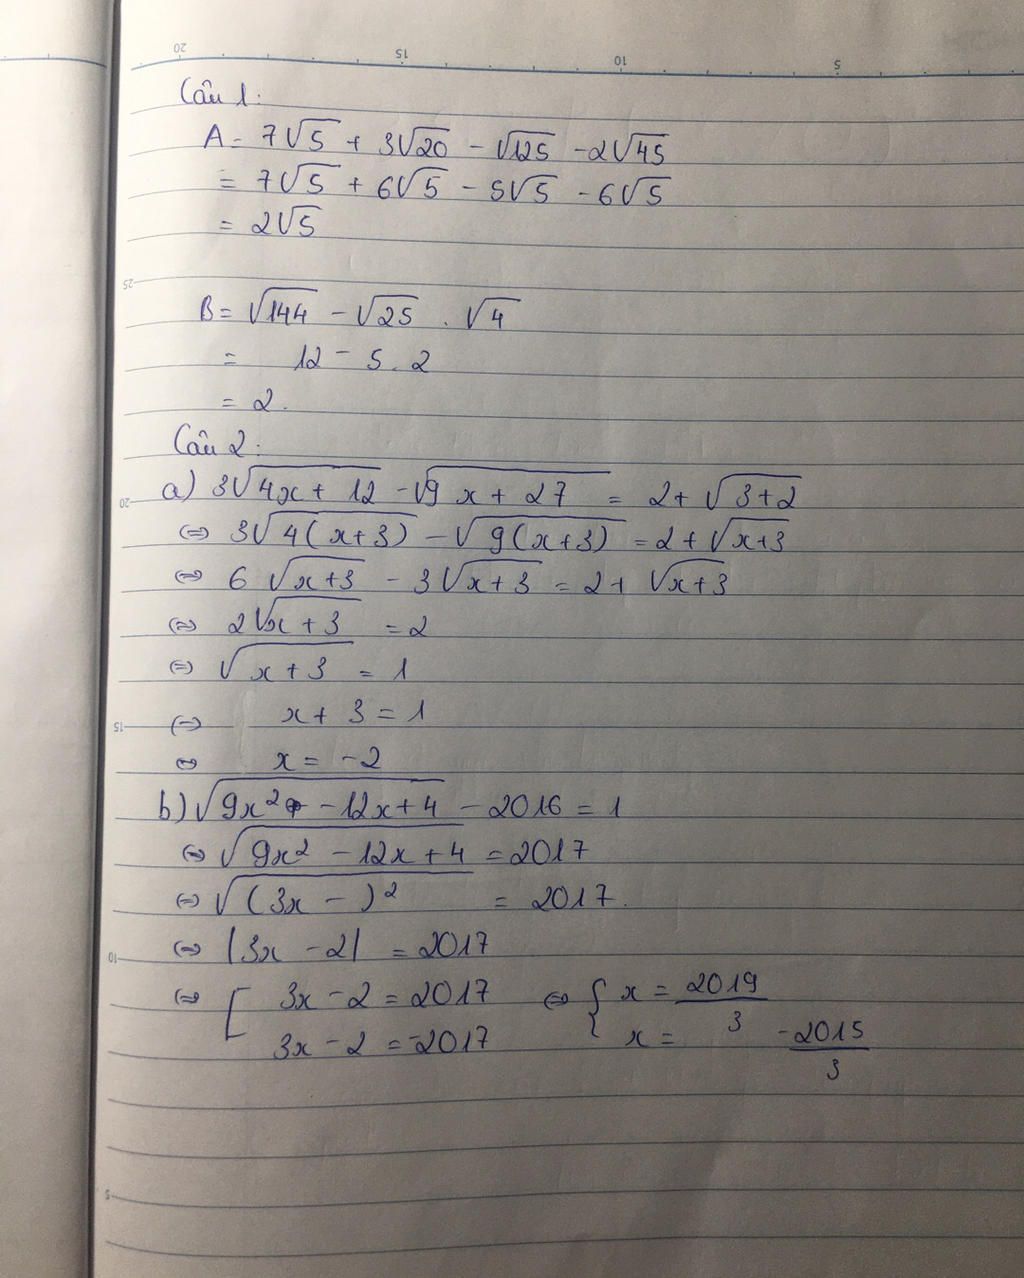 20 15 10 5
Câu 1:
A = 7√5 + 3√20 - √125 - 2√45
= 7√5 + 6√5 - 5√5 - 6√5
= 2√5
25
B = √144 - √25 . √4
= 12 - 5 . 2
= 2.
Câu 2:
20
a) 3√(4x + 12) - √(9x + 27) = 2 + √(3+2)
(=) 3√(4(x+3)) - √(9(x+3)) = 2 + √(x+3)
(=) 6√(x+3) - 3√(x+3) = 2 + √(x+3)
(=) 2√(x+3) = 2
(=) √(x+3) = 1
15
(=) x + 3 = 1
⇔ x = -2
b) √(9x² - 12x + 4) - 2016 = 1
(=) √(9x² - 12x + 4) = 2017
(=) √((3x - )²) = 2017.
10
(=) |3x - 2| = 2017
(=) [ 3x - 2 = 2017 ⇔ { x = 2019/3
3x - 2 = -2017 x = -2015/3
5